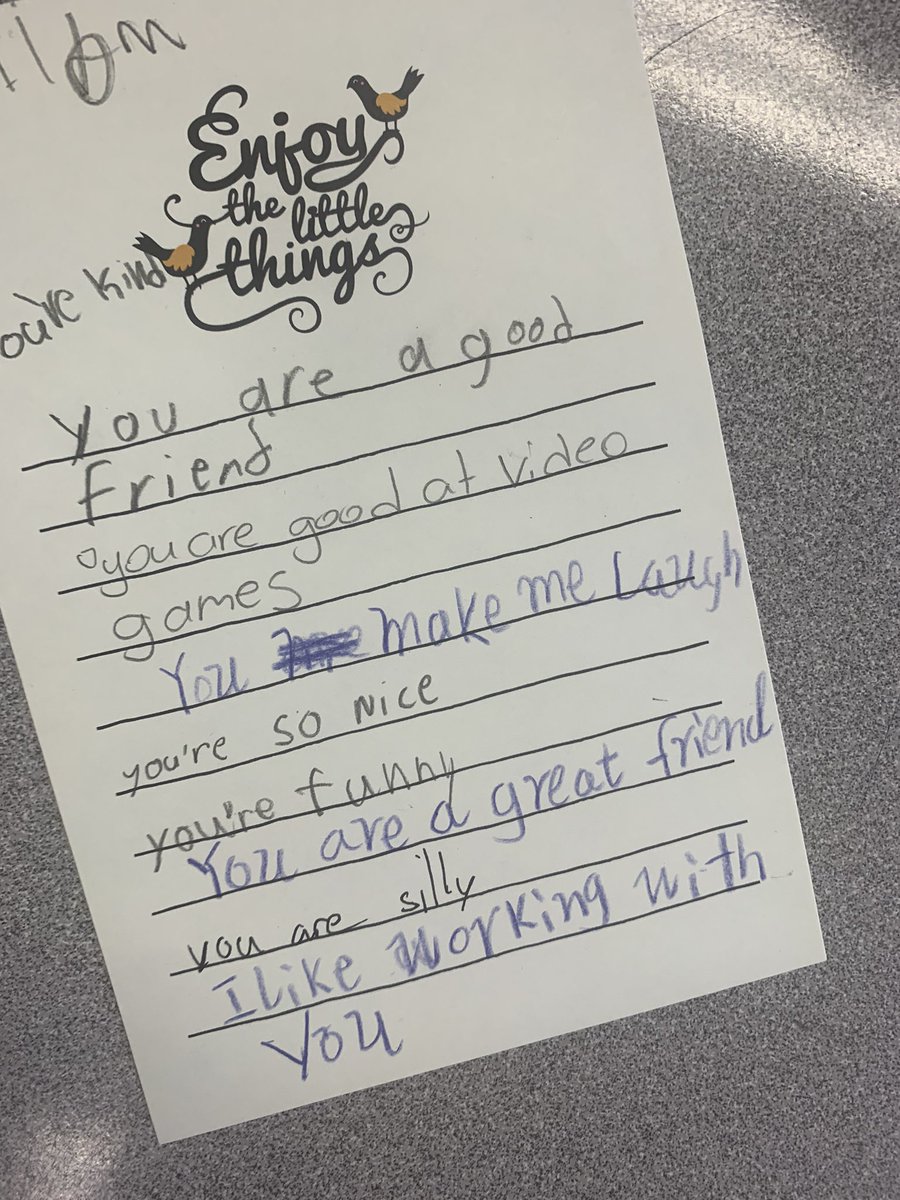 Enjoy
the little
things
you're kind
You are a good
friend
you are good at video
games
You make me laugh
you're so nice
you're funny
You are a great friend
you are silly
I like working with
you